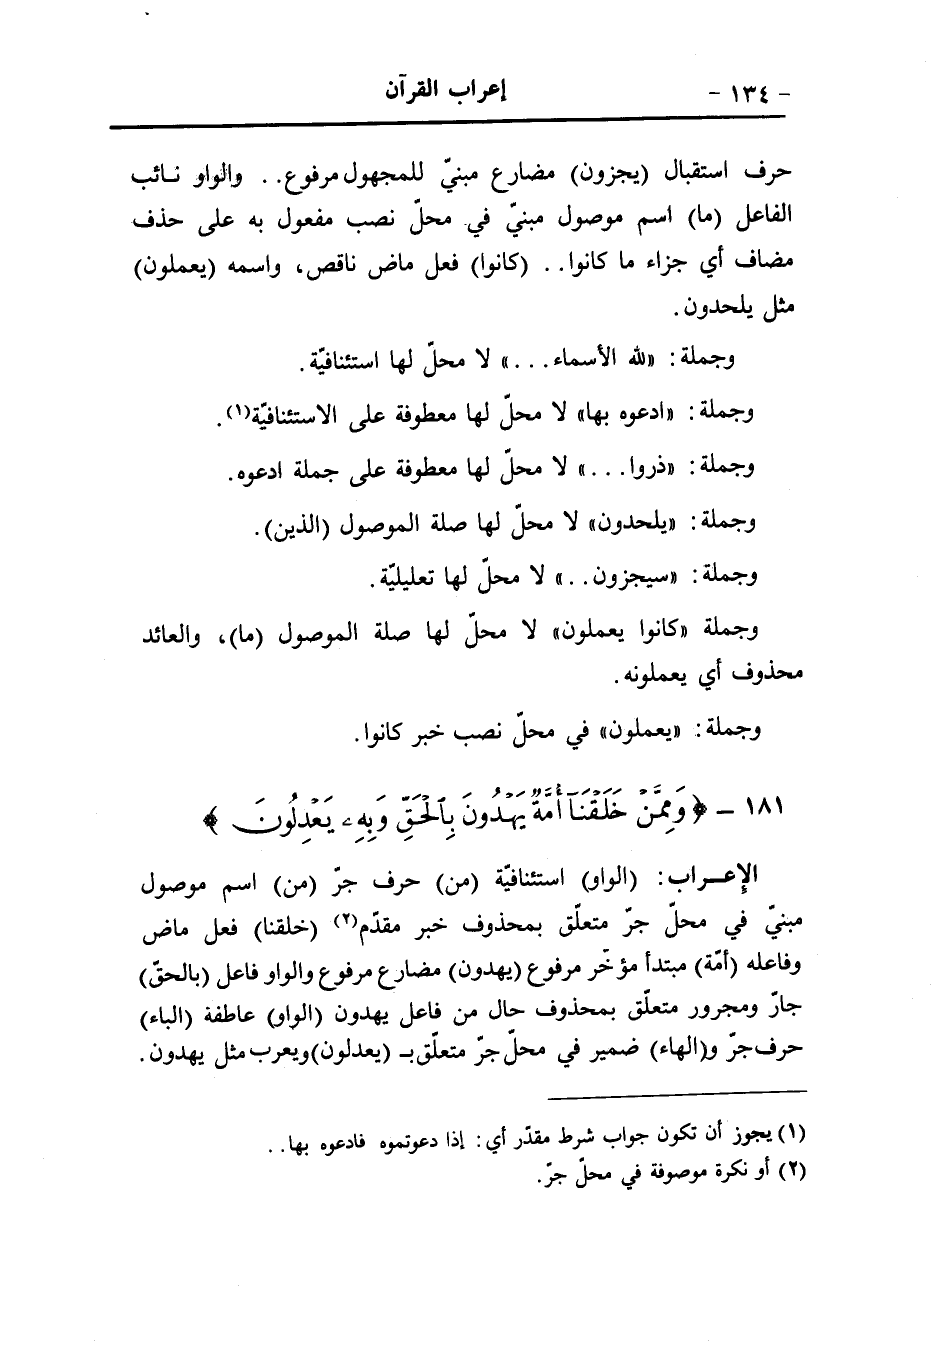 - ١٣٤ -
إعراب القرآن
حرف استقبال (يجزون) مضارع مبنيّ للمجهول مرفوع.. والواو نائب
الفاعل (ما) اسم موصول مبنيّ في محلّ نصب مفعول به على حذف
مضاف أي جزاء ما كانوا.. (كانوا) فعل ماض ناقص، واسمه (يعملون)
مثل يلحدون.
وجملة: «لله الأسماء...» لا محلّ لها استئنافيّة.
وجملة: «ادعوه بها» لا محلّ لها معطوفة على الاستئنافيّة(١).
وجملة: «ذروا...» لا محلّ لها معطوفة على جملة ادعوه.
وجملة: «يلحدون» لا محلّ لها صلة الموصول (الذين).
وجملة: «سيجزون..» لا محلّ لها تعليليّة.
وجملة «كانوا يعملون» لا محلّ لها صلة الموصول (ما)، والعائد
محذوف أي يعملونه.
وجملة: «يعملون» في محلّ نصب خبر كانوا.
١٨١ - ﴿وَمِمَّنْ خَلَقْنَآ أُمَّةٌ يَهْدُونَ بِٱلْحَقِّ وَبِهِۦ يَعْدِلُونَ﴾
الإعراب: (الواو) استئنافيّة (من) حرف جرّ (من) اسم موصول
مبنيّ في محلّ جرّ متعلّق بمحذوف خبر مقدّم(٢) (خلقنا) فعل ماض
وفاعله (أمّة) مبتدأ مؤخّر مرفوع (يهدون) مضارع مرفوع والواو فاعل (بالحقّ)
جارّ ومجرور متعلّق بمحذوف حال من فاعل يهدون (الواو) عاطفة (الباء)
حرف جرّ و(الهاء) ضمير في محلّ جرّ متعلّق بـ (يعدلون) ويعرب مثل يهدون.
(١) يجوز أن تكون جواب شرط مقدّر أي: إذا دعوتموه فادعوه بها..
(٢) أو نكرة موصوفة في محلّ جرّ.